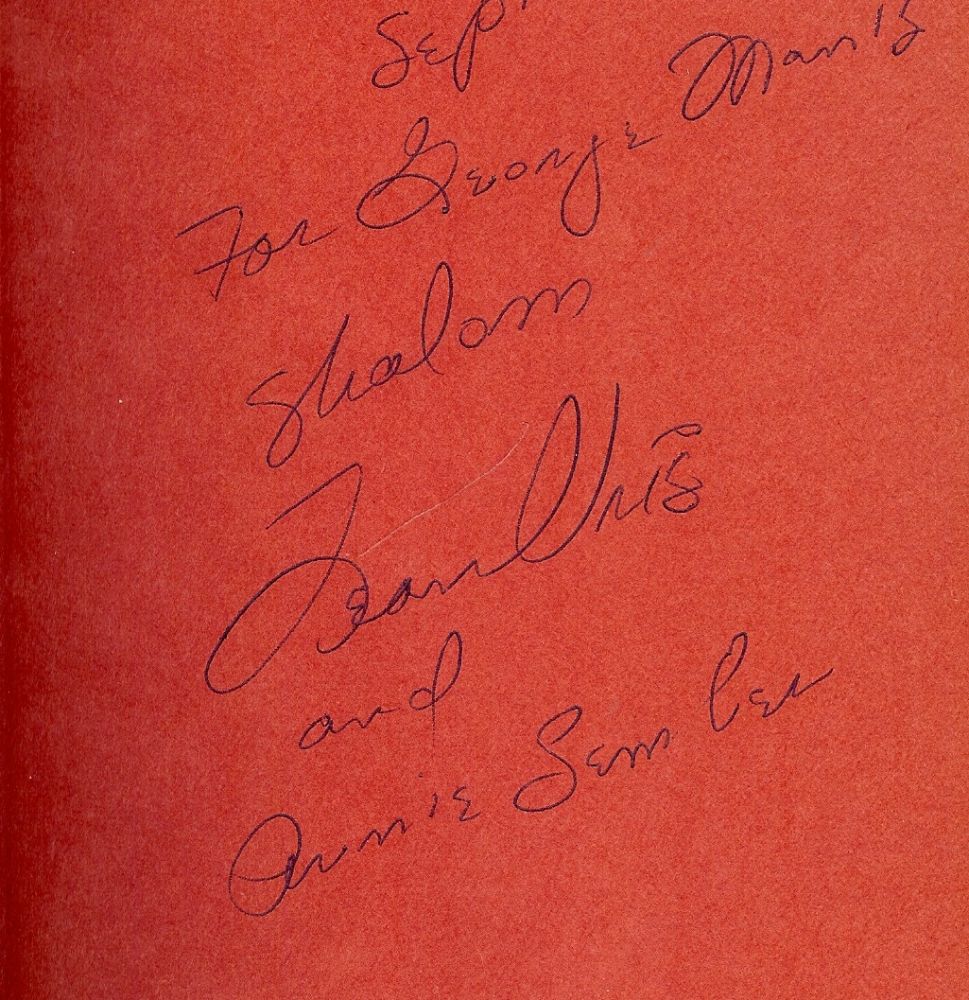 Sep
For George Manis
Shalom
Leon Uris
and
Annie Sember